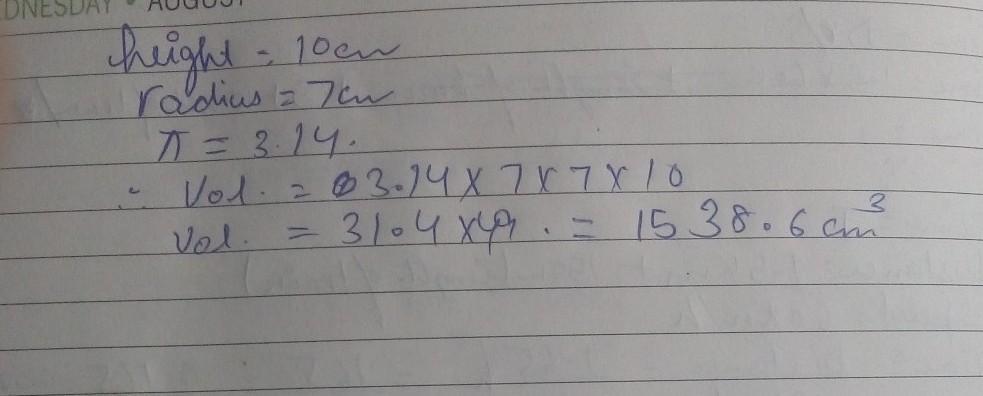 DNESDAY • AUGUST
height = 10cm
radius = 7cm
π = 3.14.
∴ Vol. = 3.14 x 7 x 7 x 10
Vol. = 31.4 x 49. = 1538.6 cm³